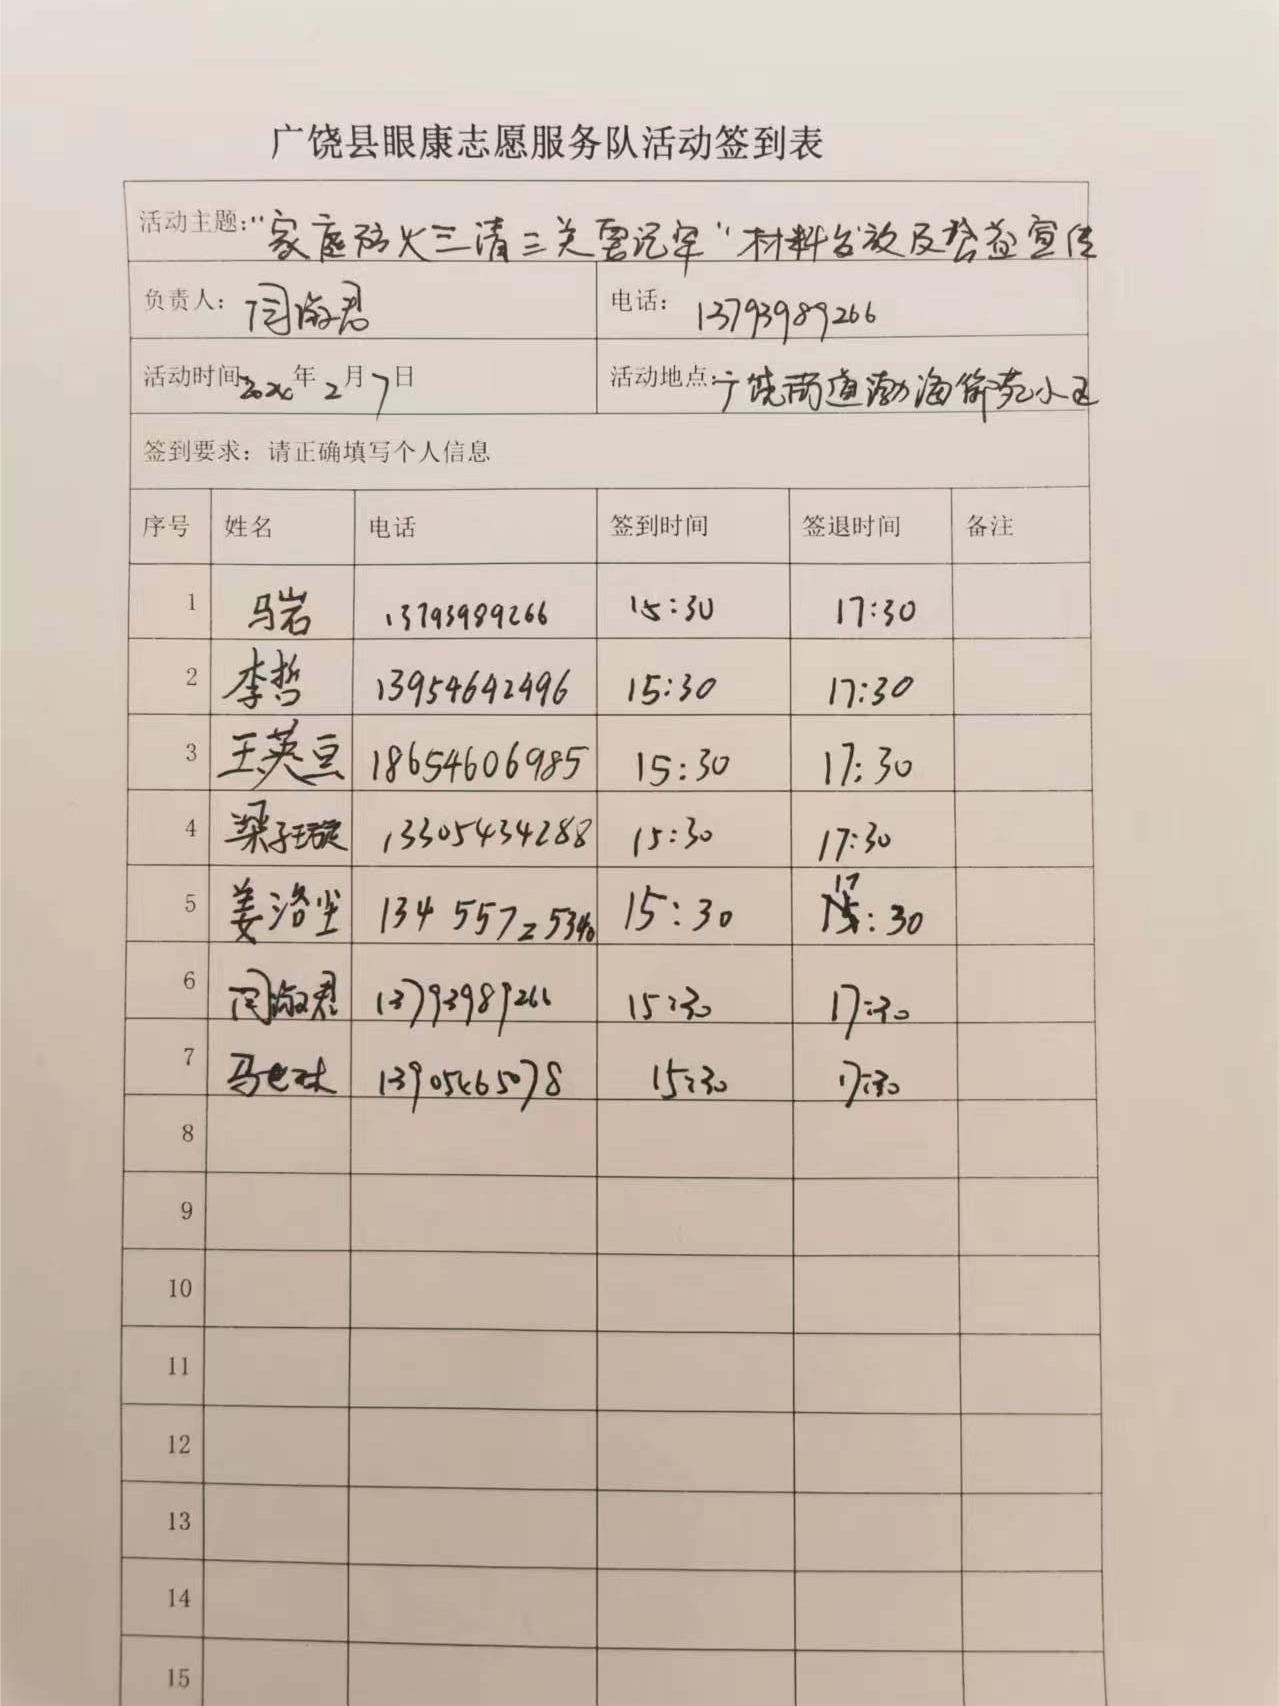 广饶县眼康志愿服务队活动签到表
活动主题:"家庭防火三清三关要记牢"材料发放及公益宣传
负责人: 闫淑君 电话: 13793989266
活动时间 年 2月7日 活动地点: 广饶街道渤海 苑小区
签到要求: 请正确填写个人信息
序号 姓名 电话 签到时间 签退时间 备注
1 马岩 13793989266 15:30 17:30
2 李哲 13954642496 15:30 17:30
3 王英豆 18654606985 15:30 17:30
4 梁子璇 13305434288 15:30 17:30
5 姜洛尘 134 5572 5340 15:30 17:30
6 闫淑君 13793989266 15:30 17:30
7 马 林 13905465078 15:30 17:30
8
9
10
11
12
13
14
15